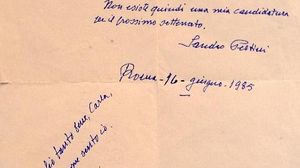 Non esiste quindi una mia candidatura
per il prossimo settennato.
Sandro Pertini
Roma - 16 - giugno - 1985
tanto bene, Carla,